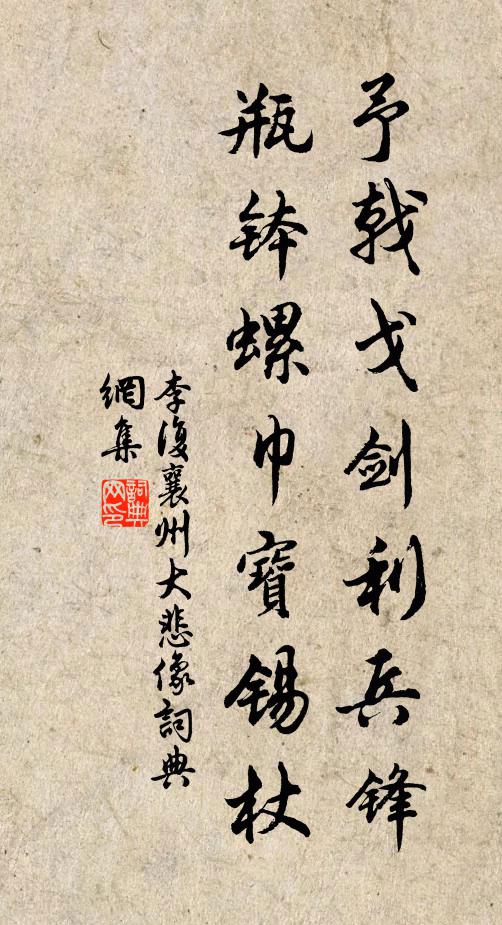 予戟戈剑利兵锋
瓶钵螺巾寶锡杖
李復襄州大悲像詞典
網集
詞典
网印